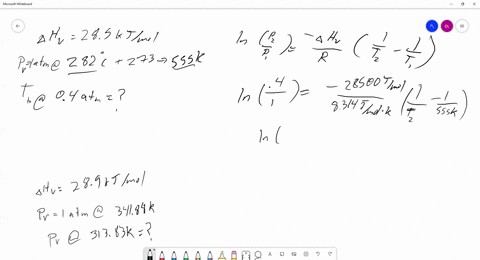 Microsoft Whiteboard
ΔHv = 28.5 kJ/mol
Pv = 1 atm @ 282°c + 273 → 555K
Tn @ 0.4 atm = ?
ln (P2/P1) = -ΔHv/R (1/T2 - 1/T1)
ln (.4/1) = -28500 J/mol / 8.314 J/mol·k (1/T2 - 1/555k)
ln (
ΔHv = 28.9 kJ/mol
Pv = 1 atm @ 341.89k
Pv @ 313.83k = ?